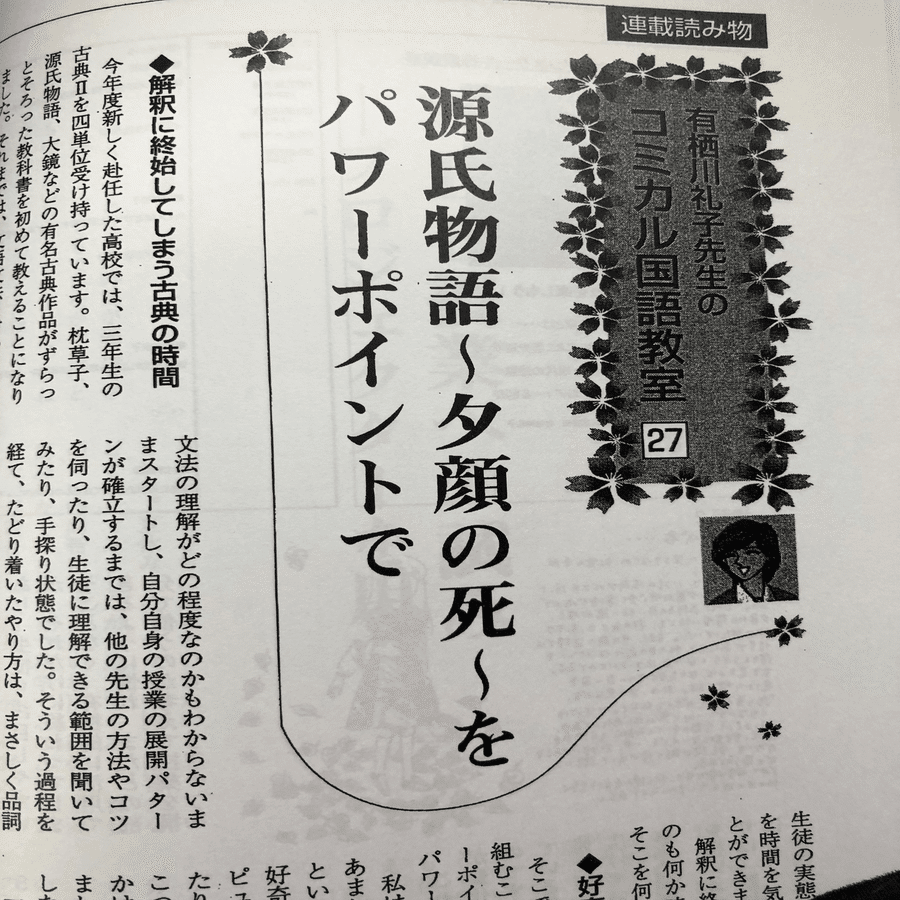 連載読み物
有栖川礼子先生の
コミカル国語教室
27
源氏物語〜夕顔の死〜を
パワーポイントで
◆解釈に終始してしまう古典の時間
今年度新しく赴任した高校では、三年生の
古典Ⅱを四単位受け持っています。枕草子、
源氏物語、大鏡などの有名古典作品がずらっ
とそろった教科書を初めて教えることになり
ました。それまでは、
文法の理解がどの程度なのかもわからないま
まスタートし、自分自身の授業の展開パター
ンが確立するまでは、他の先生の方法やコツ
を伺ったり、生徒に理解できる範囲を聞いて
みたり、手探り状態でした。そういう過程を
経て、たどり着いたやり方は、まさしく品詞
生徒の実態
を時間を気
とができま
解釈に終
のも何か
そこを何
◆好
そこで
組むこ
ーポイ
パワー
私は
あま
とい
好奇
ピュ
たり
こつ
かけ
まし
した